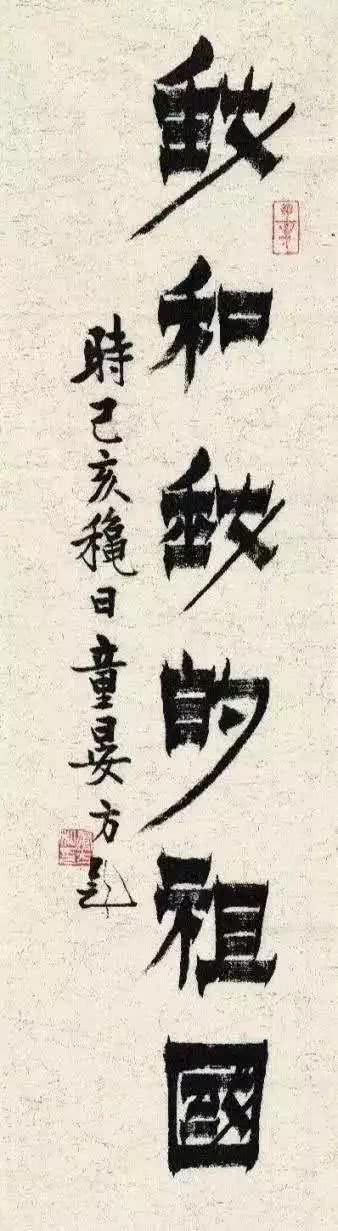 我和我的祖國
時己亥龝日童晏方題